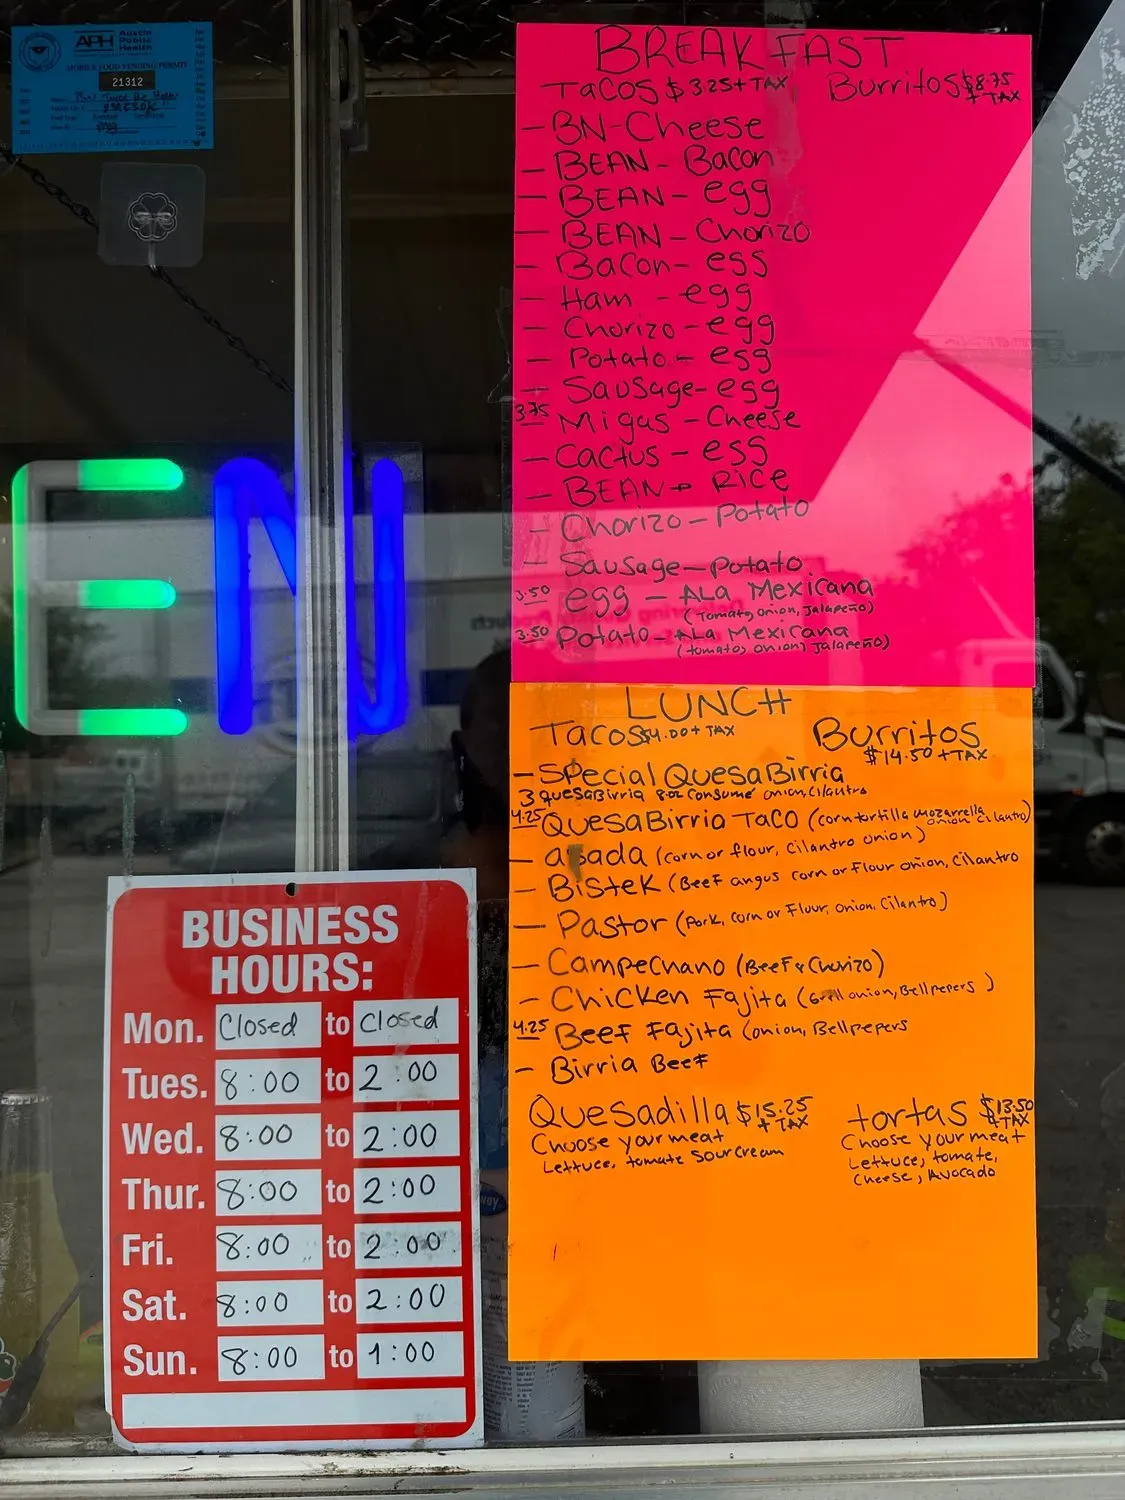 APH Austin Public Health
MOBILE FOOD VENDING PERMIT
21312
EN
BREAKFAST
Tacos $3.25 + TAX Burritos $8.75 + TAX
- BN - Cheese
- BEAN - Bacon
- BEAN - egg
- BEAN - Chorizo
- Bacon - egg
- Ham - egg
- Chorizo - egg
- Potato - egg
- Sausage - egg
3.75 Migas - Cheese
- Cactus - egg
- BEAN + RICE
- Chorizo - Potato
- Sausage - Potato
3.50 egg - ALa Mexicana
(Tomato, onion, Jalapeño)
3.50 Potato - ALa Mexicana
(tomato, onion, Jalapeño)
LUNCH
Tacos $4.00 + TAX Burritos
$14.50 + TAX
- Special QuesaBirria
3 quesaBirria 8oz Consumé onion, Cilantro
4.25 QuesaBirria Taco (corn tortilla mozarrella onion Cilantro)
- asada (corn or flour, Cilantro onion)
- Bistek (Beef angus corn or Flour onion, Cilantro
- Pastor (Pork, corn or Flour, onion, Cilantro)
- Campechano (Beef & Chorizo)
- Chicken Fajita (Grill onion, Bellpepers)
4.25 Beef Fajita (onion, Bellpepers
- Birria Beef
Quesadilla $15.25 + TAX
Choose your meat
Lettuce, tomate Sour cream
tortas $13.50 + TAX
Choose your meat
Lettuce, tomate,
Cheese, Avocado
BUSINESS
HOURS:
Mon. Closed to Closed
Tues. 8:00 to 2:00
Wed. 8:00 to 2:00
Thur. 8:00 to 2:00
Fri. 8:00 to 2:00
Sat. 8:00 to 2:00
Sun. 8:00 to 1:00